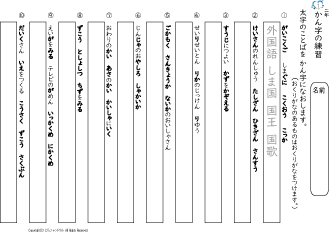 二年
かん字の練習
名前
太字のことばを かん字になおします。
(おくりがなのあるものはおくりがなをつけます。)
① がいこくご しまぐに こくおう こっか
外国語 しま国 国王 国歌
② けいさんのれんしゅう たしざん ひきざん さんすう
③ すうじにつよい かずをかぞえる
④ せいりせいとん りかのじっけん りゆう
⑤ ごかもく さんちょうか ないかのおいしゃさん
⑥ じんじゃのおやしろ しゃかいか
⑦ おわりのかい あさのかい かいしゃにいく
⑧ ずこう としょしつ ちずをみる
⑨ えいがをみる テレビのがめん いっかくめ にかくめ
⑩ だいくさん いえをつくる こうさく ずこう さくぶん